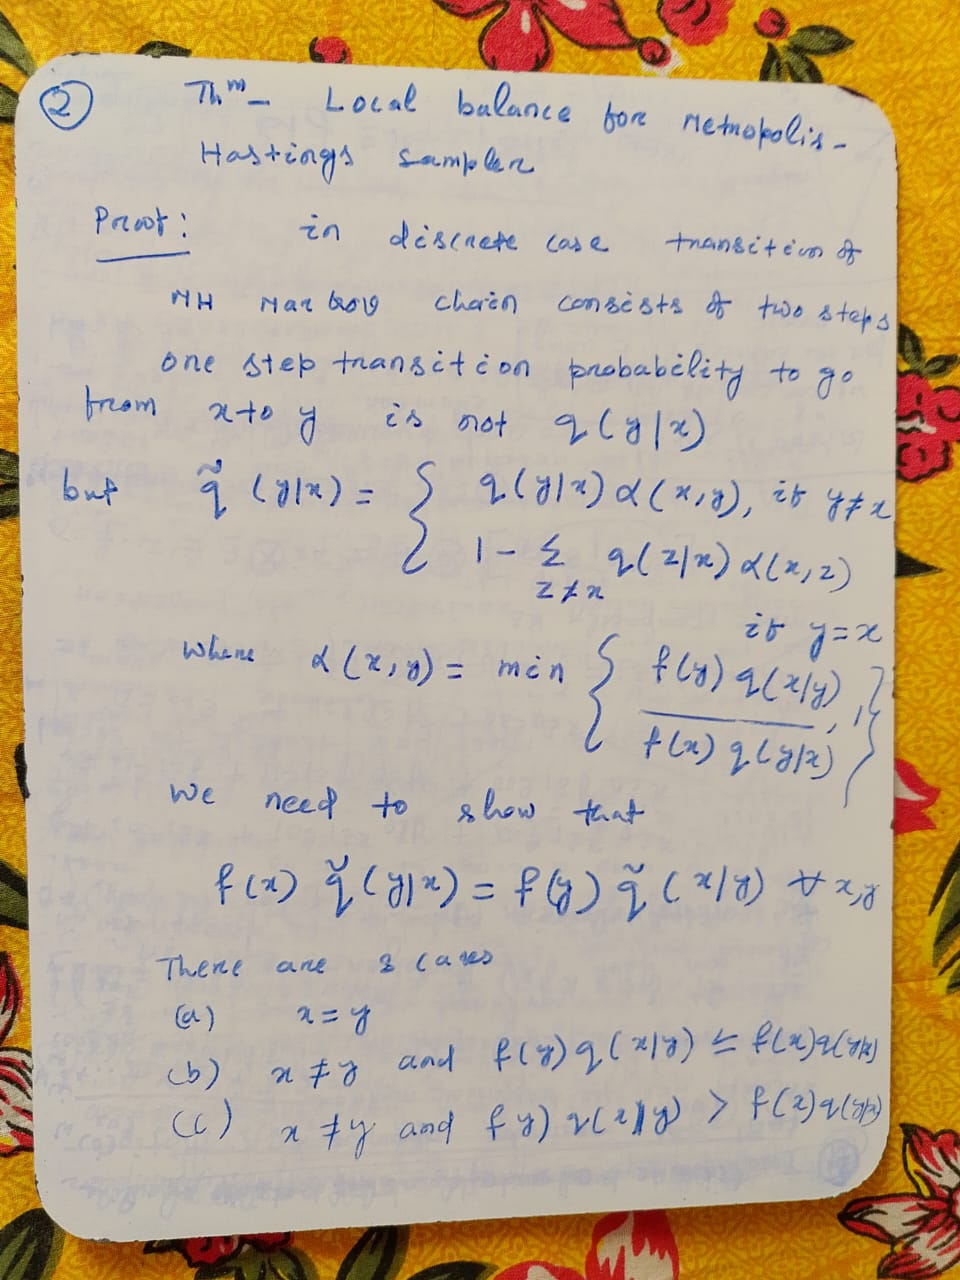 2
Thm - Local balance for Metropolis -
Hastings sampler
Proof: in discrete case transition of
MH Markov chain consists of two steps
one step transition probability to go
from x to y is not q(y|x)
but q̃ (y|x) = { q(y|x) α(x,y), if y≠x
1 - Σ q(z|x) α(x,z)
z≠x
if y=x
where α(x,y) = min { f(y) q(x|y) / f(x) q(y|x) , 1 }
We need to show that
f(x) q̃ (y|x) = f(y) q̃ (x|y) ∀ x,y
There are 3 cases
(a) x=y
(b) x ≠ y and f(y) q(x|y) ≤ f(x) q(y|x)
(c) x ≠ y and f y) q(x|y) > f(x) q(y|x)